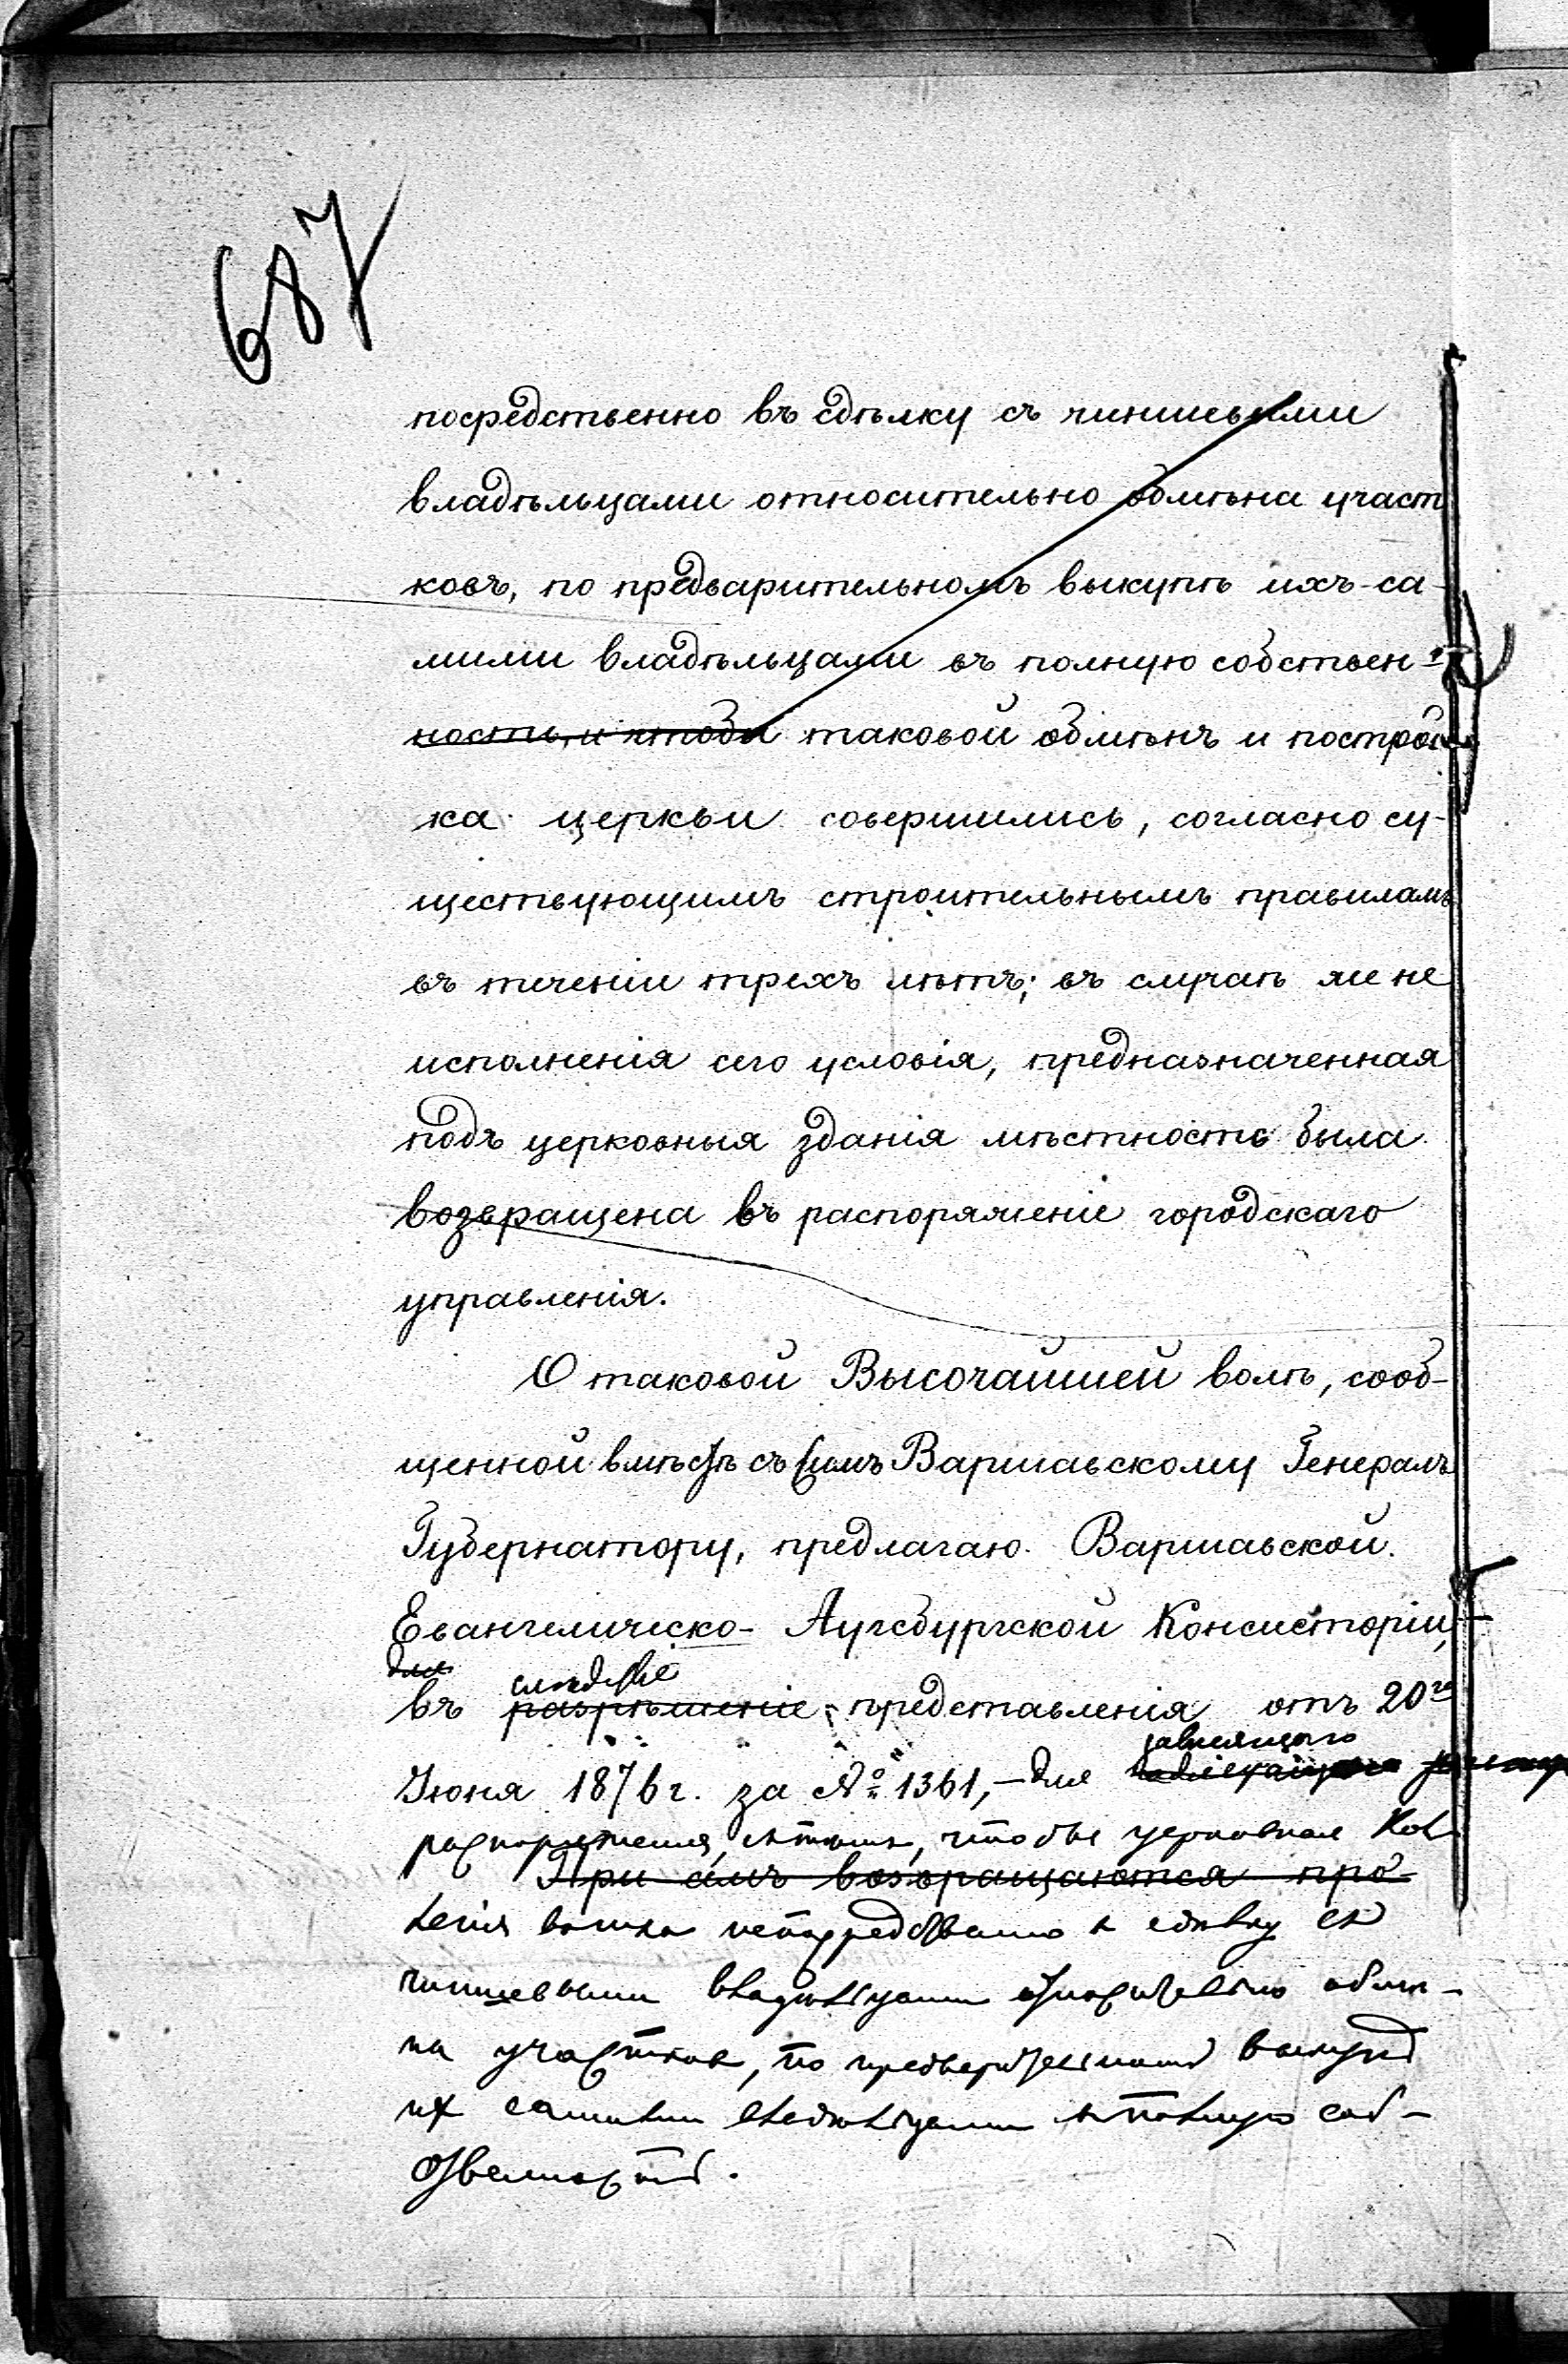 687
посредственно въ сдѣлку съ чиншевыми
владѣльцами относительно обмѣна участ
ковъ, по предварительномъ выкупѣ ихъ са-
мими владѣльцами въ полную собствен-
ность, и чтобы таковой обмѣнъ и построй
ка церкви совершились, согласно су-
ществующимъ строительнымъ правиламъ
въ теченіи трехъ лѣтъ; въ случаѣ же не
исполненія сего условія, предназначенная
подъ церковныя зданія мѣстность была
возвращена въ распоряженіе городскаго
управленія.
О таковой Высочайшей волѣ, сооб-
щенной вмѣстѣ съ симъ Варшавскому Генералъ
Губернатору, предлагаю Варшавской
Евангелическо-Аугсбургской Консисторіи,
для слѣдствіе
въ разрѣшеніе представленія отъ 20го
зависящаго
Іюня 1876 г. за № 1361,- для надлежащаго
распоряженія, съ тѣмъ, чтобы церковная Кол
При семъ возвращаются про-
легія вошла непосредственно в сдѣлку съ
чиншевыми владѣльцами относительно обмѣ-
на участков, по предварительном выкупѣ
их самими владѣльцами в полную соб-
ственность.